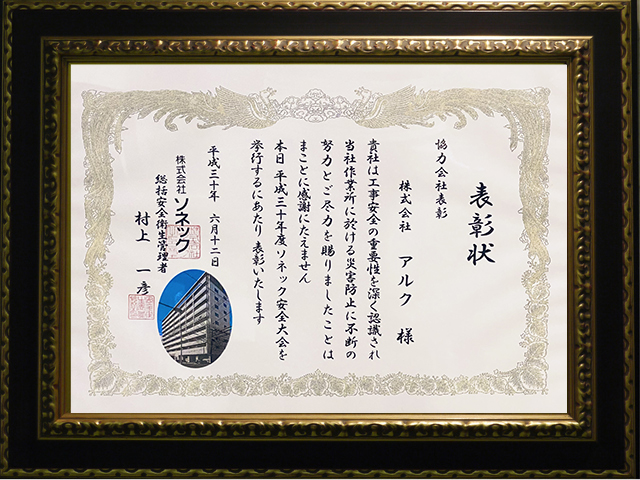 表彰状
協力会社表彰
株式会社 アルク 様
貴社は工事安全の重要性を深く認識され
当社作業所に於ける災害防止に不断の
努力とご尽力を賜りましたことは
まことに感謝にたえません
本日 平成三十年度ソネック安全大会を
挙行するにあたり 表彰いたします
平成三十年 六月十二日
株式会社 ソネック
総括安全衛生管理者
村上 一彦